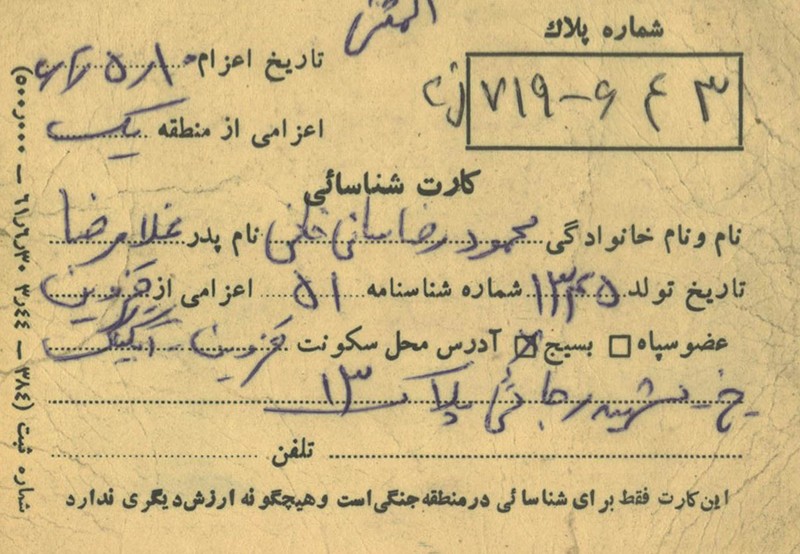 المثنی
شماره پلاك
تاریخ اعزام ۱۰ر۵ر
۷۱۹-۶۴۳
اعزامی از منطقه یک
کارت شناسائی
نام ونام خانوادگی محمودرضا ساتی خانی نام پدر غلامرضا
تاریخ تولد ۱۳۴۵ شماره شناسنامه ۵۱ اعزامی از قزوین
عضو سپاه □ بسیج ☒ آدرس محل سکونت قزوین -
خ - شهید رجائی پلاک ۱۳
تلفن
این کارت فقط برای شناسائی در منطقه جنگی است وهیچگونه ارزش دیگری ندارد
شماره ثبت (۳۸٤ — ۳ر٤٤ ۶۱ر۶ر۳۰ — ۵۰۰ر۰۰۰)